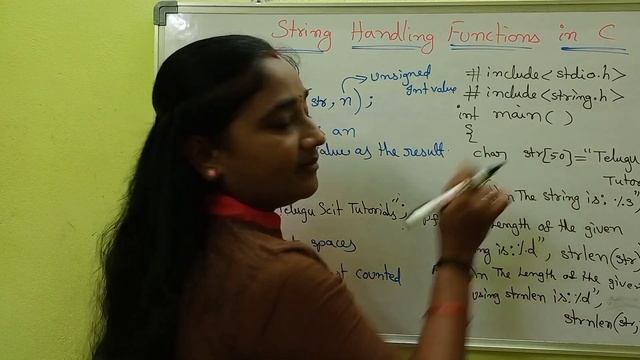 String Handling Functions in C
unsigned
Int value
str, n);
an
value as the result.
Telugu Scit Tutorials";
spaces
counted
# include<stdio.h>
# include<string.h>
int main( )
{
char str[50]="Telugu
Tutor
The string is: %s"
Length of the given
is:%d", strlen(str
The Length of the given
using strnlen is:%d",
strnlen(str,